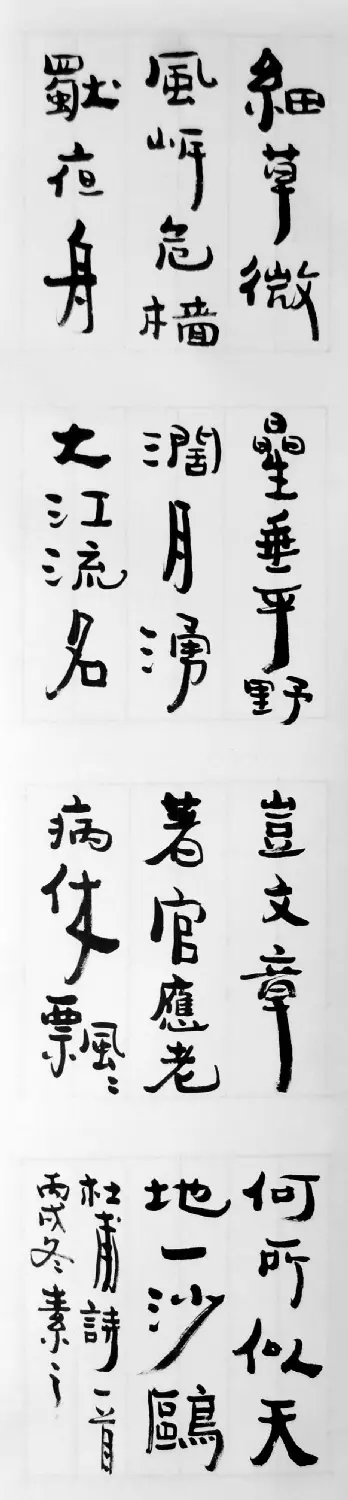 細草微
風岸危檣
獨夜舟
曐垂平野
濶月湧
大江流名
豈文章
著官應老
病休飄〻
何所似天
地一沙鷗
杜甫詩一首
丙戌冬素之